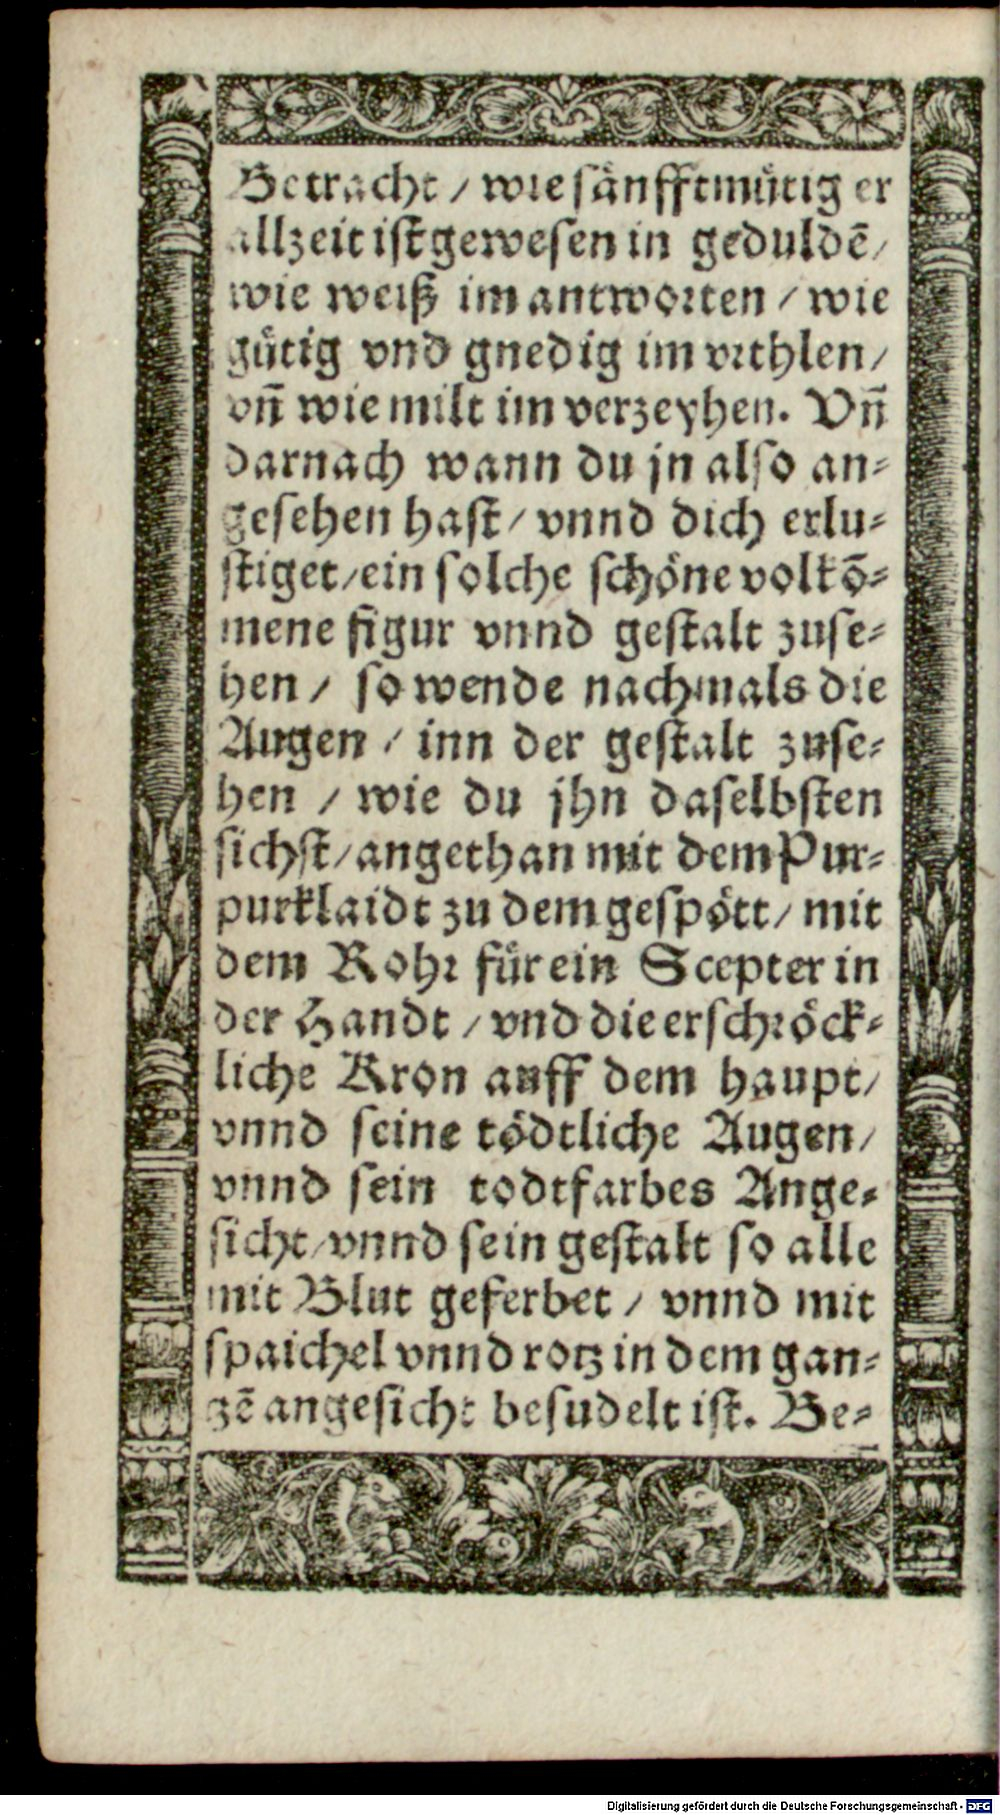 Betracht / wie sänfftmütig er
allzeit ist gewesen in geduldē /
wie weiß im antworten / wie
gütig vnd gnedig im vrthlen /
vñ wie milt im verzeyhen. Vñ
darnach wann du jn also an⸗
gesehen hast / vnnd dich erlu⸗
stiget / ein solche schöne volkō⸗
mene figur vnnd gestalt zuse⸗
hen / so wende nachmals die
Augen / inn der gestalt zuse⸗
hen / wie du jhn daselbsten
sichst / angethan mit dem Pur⸗
purklaidt zu dem gespött / mit
dem Rohr für ein Scepter in
der Handt / vnd die erschröck⸗
liche Kron auff dem haupt /
vnnd seine tödtliche Augen /
vnnd sein todtfarbes Ange⸗
sicht / vnnd sein gestalt so alle
mit Blut geferbet / vnnd mit
spaichel vnnd rotz in dem gan⸗
zē angesicht besudelt ist. Be⸗
Digitalisierung gefördert durch die Deutsche Forschungsgemeinschaft - DFG